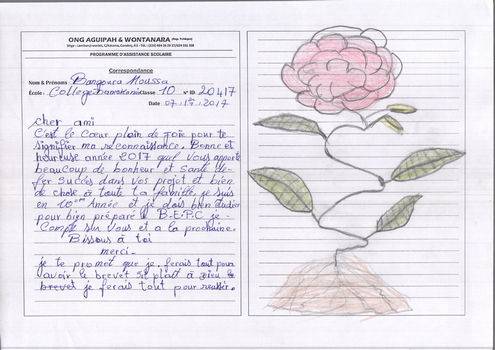 ONG AGUIPAH & WONTANARA (Rép. Tchèque)
PROGRAMME D'ASSISTANCE SCOLAIRE
Correspondance
Nom & Prénoms : Bangoura Moussa
École : College Classe 10 N° ID: 20417
Date : 07-1-2017
cher ami
C'est le Cœur plein de joie pour te
signifier ma reconnaissance. Bonne et
heureuse année 2017 quel vous apporte
beaucoup de bonheur et santé de
fer succès dans vos projet et bien
de chose à toute ta famille je suis
en 10ème Année et je dois bien étudier
pour bien préparé le B-E-P-C je
Compte sur vous et a la prochaine.
Bissous à toi
merci.
je te promet que je ferais tout pour
avoir le brevet s'il plait à Dieu le
brevet je ferais tout pour reussir.